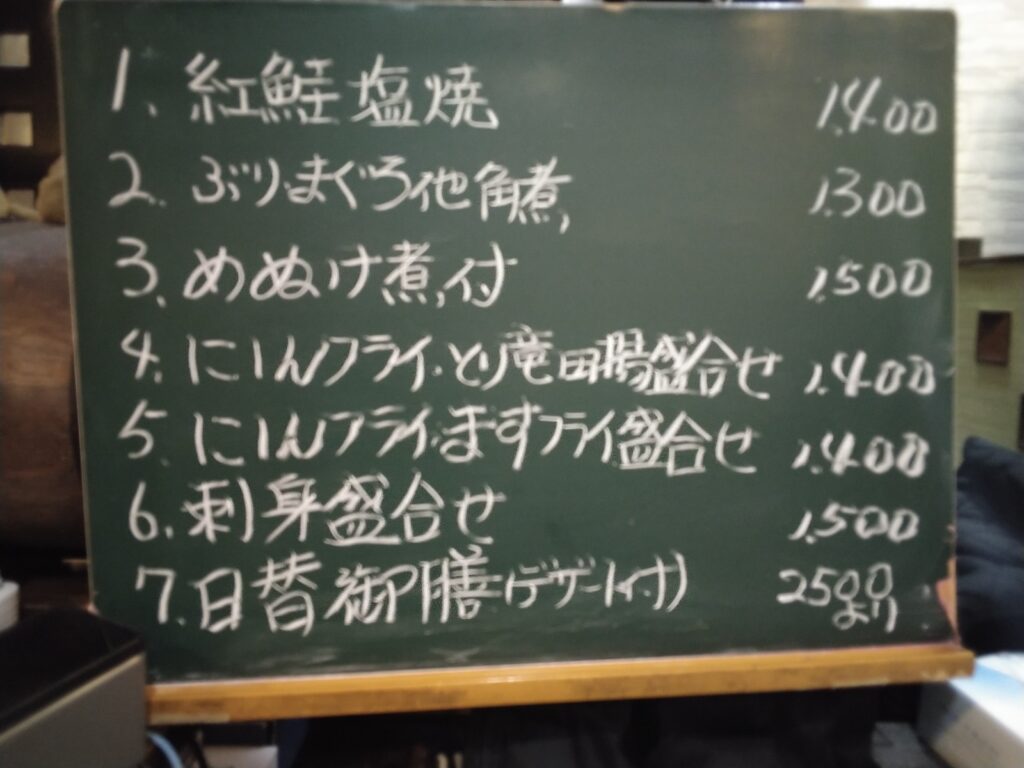 1. 紅鮭塩焼 1.400
2. ぶり.まぐろ他角煮 1.300
3. めぬけ煮付 1.500
4. にしんフライ.とり竜田揚盛合せ 1.400
5. にしんフライ.ますフライ盛合せ 1.400
6. 刺身盛合せ 1.500
7. 日替御膳(デザート付) 2500より